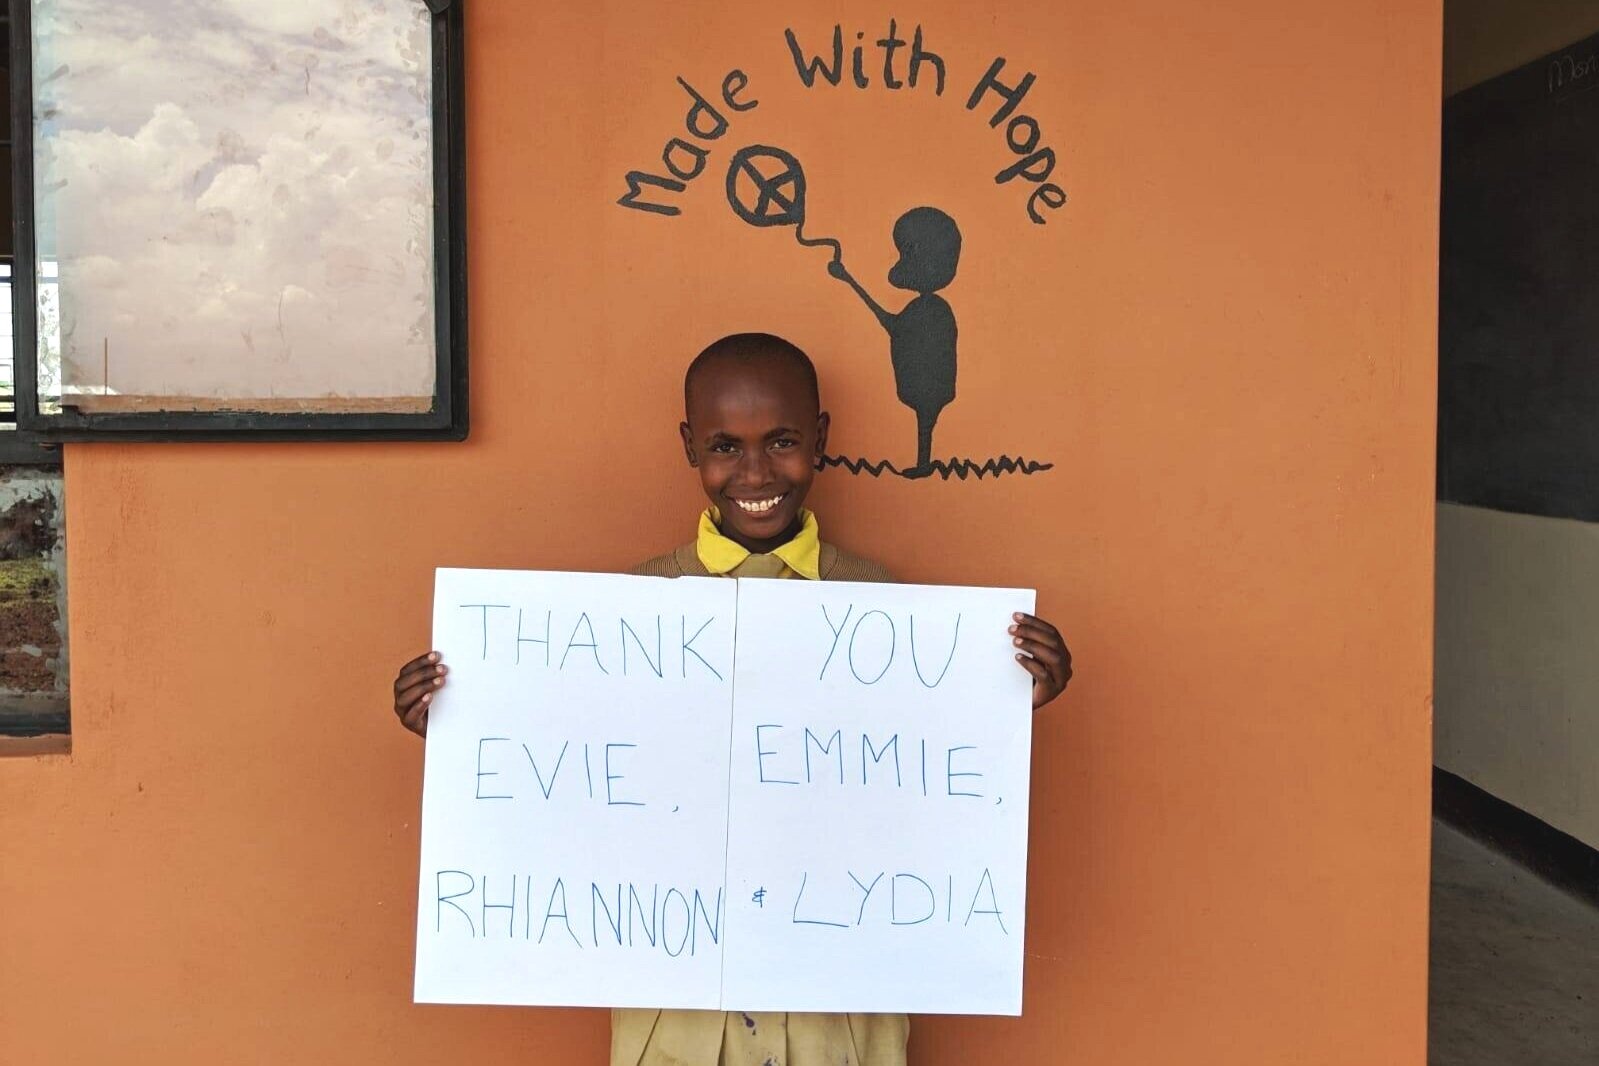 Made With Hope
THANK YOU
EVIE, EMMIE,
RHIANNON & LYDIA